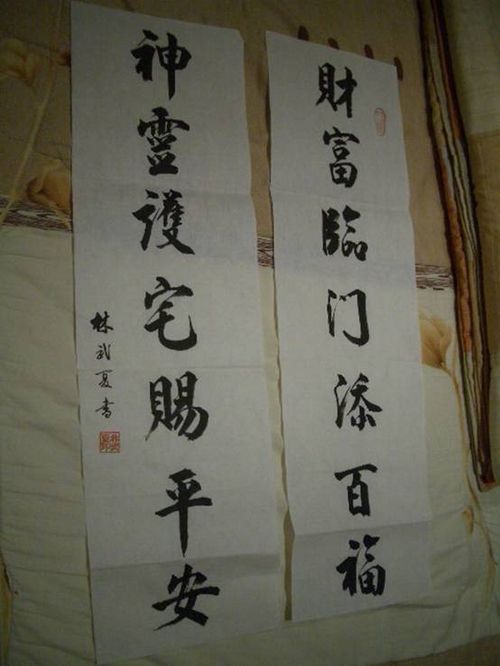 財富臨门添百福
神靈護宅賜平安
林武夏書